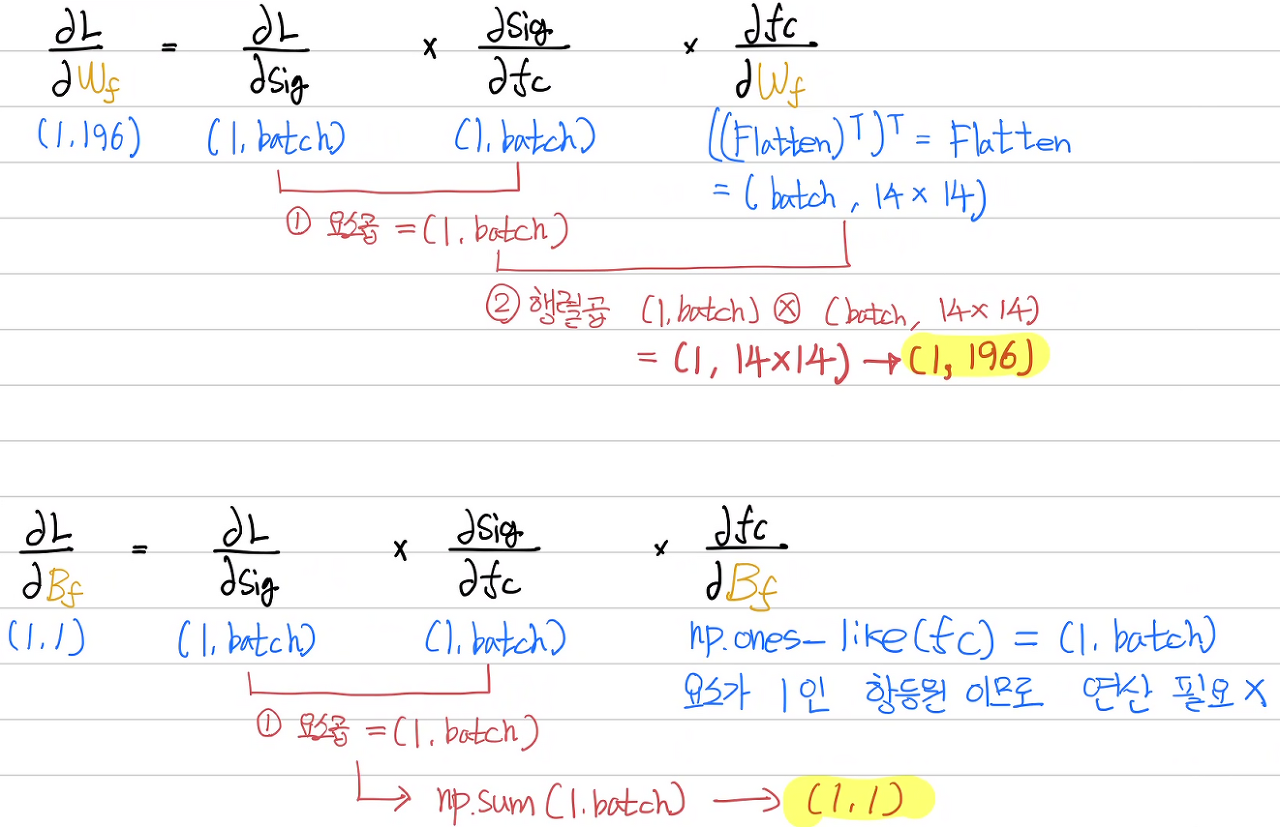 ∂L/∂W_f = ∂L/∂Sig × ∂Sig/∂fc × ∂fc/∂W_f
(1,196) (1, batch) (1. batch) ((Flatten)ᵀ)ᵀ = Flatten
= (batch, 14×14)
① 요소곱 = (1. batch)
② 행렬곱 (1, batch) ⊗ (batch, 14×14)
= (1, 14×14) → (1, 196)
∂L/∂B_f = ∂L/∂Sig × ∂Sig/∂fc × ∂fc/∂B_f
(1,1) (1, batch) (1. batch) np.ones_like(fc) = (1. batch)
요소가 1인 항등원 이므로 연산 필요 X
① 요소곱 = (1. batch)
→ np.sum(1.batch) → (1,1)